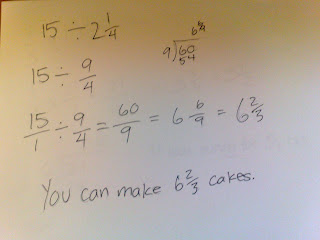 15 ÷ 2 1/4
6 6/9
9 60
54
15 ÷ 9/4
15/1 ÷ 9/4 = 60/9 = 6 6/9 = 6 2/3
You can make 6 2/3 cakes.